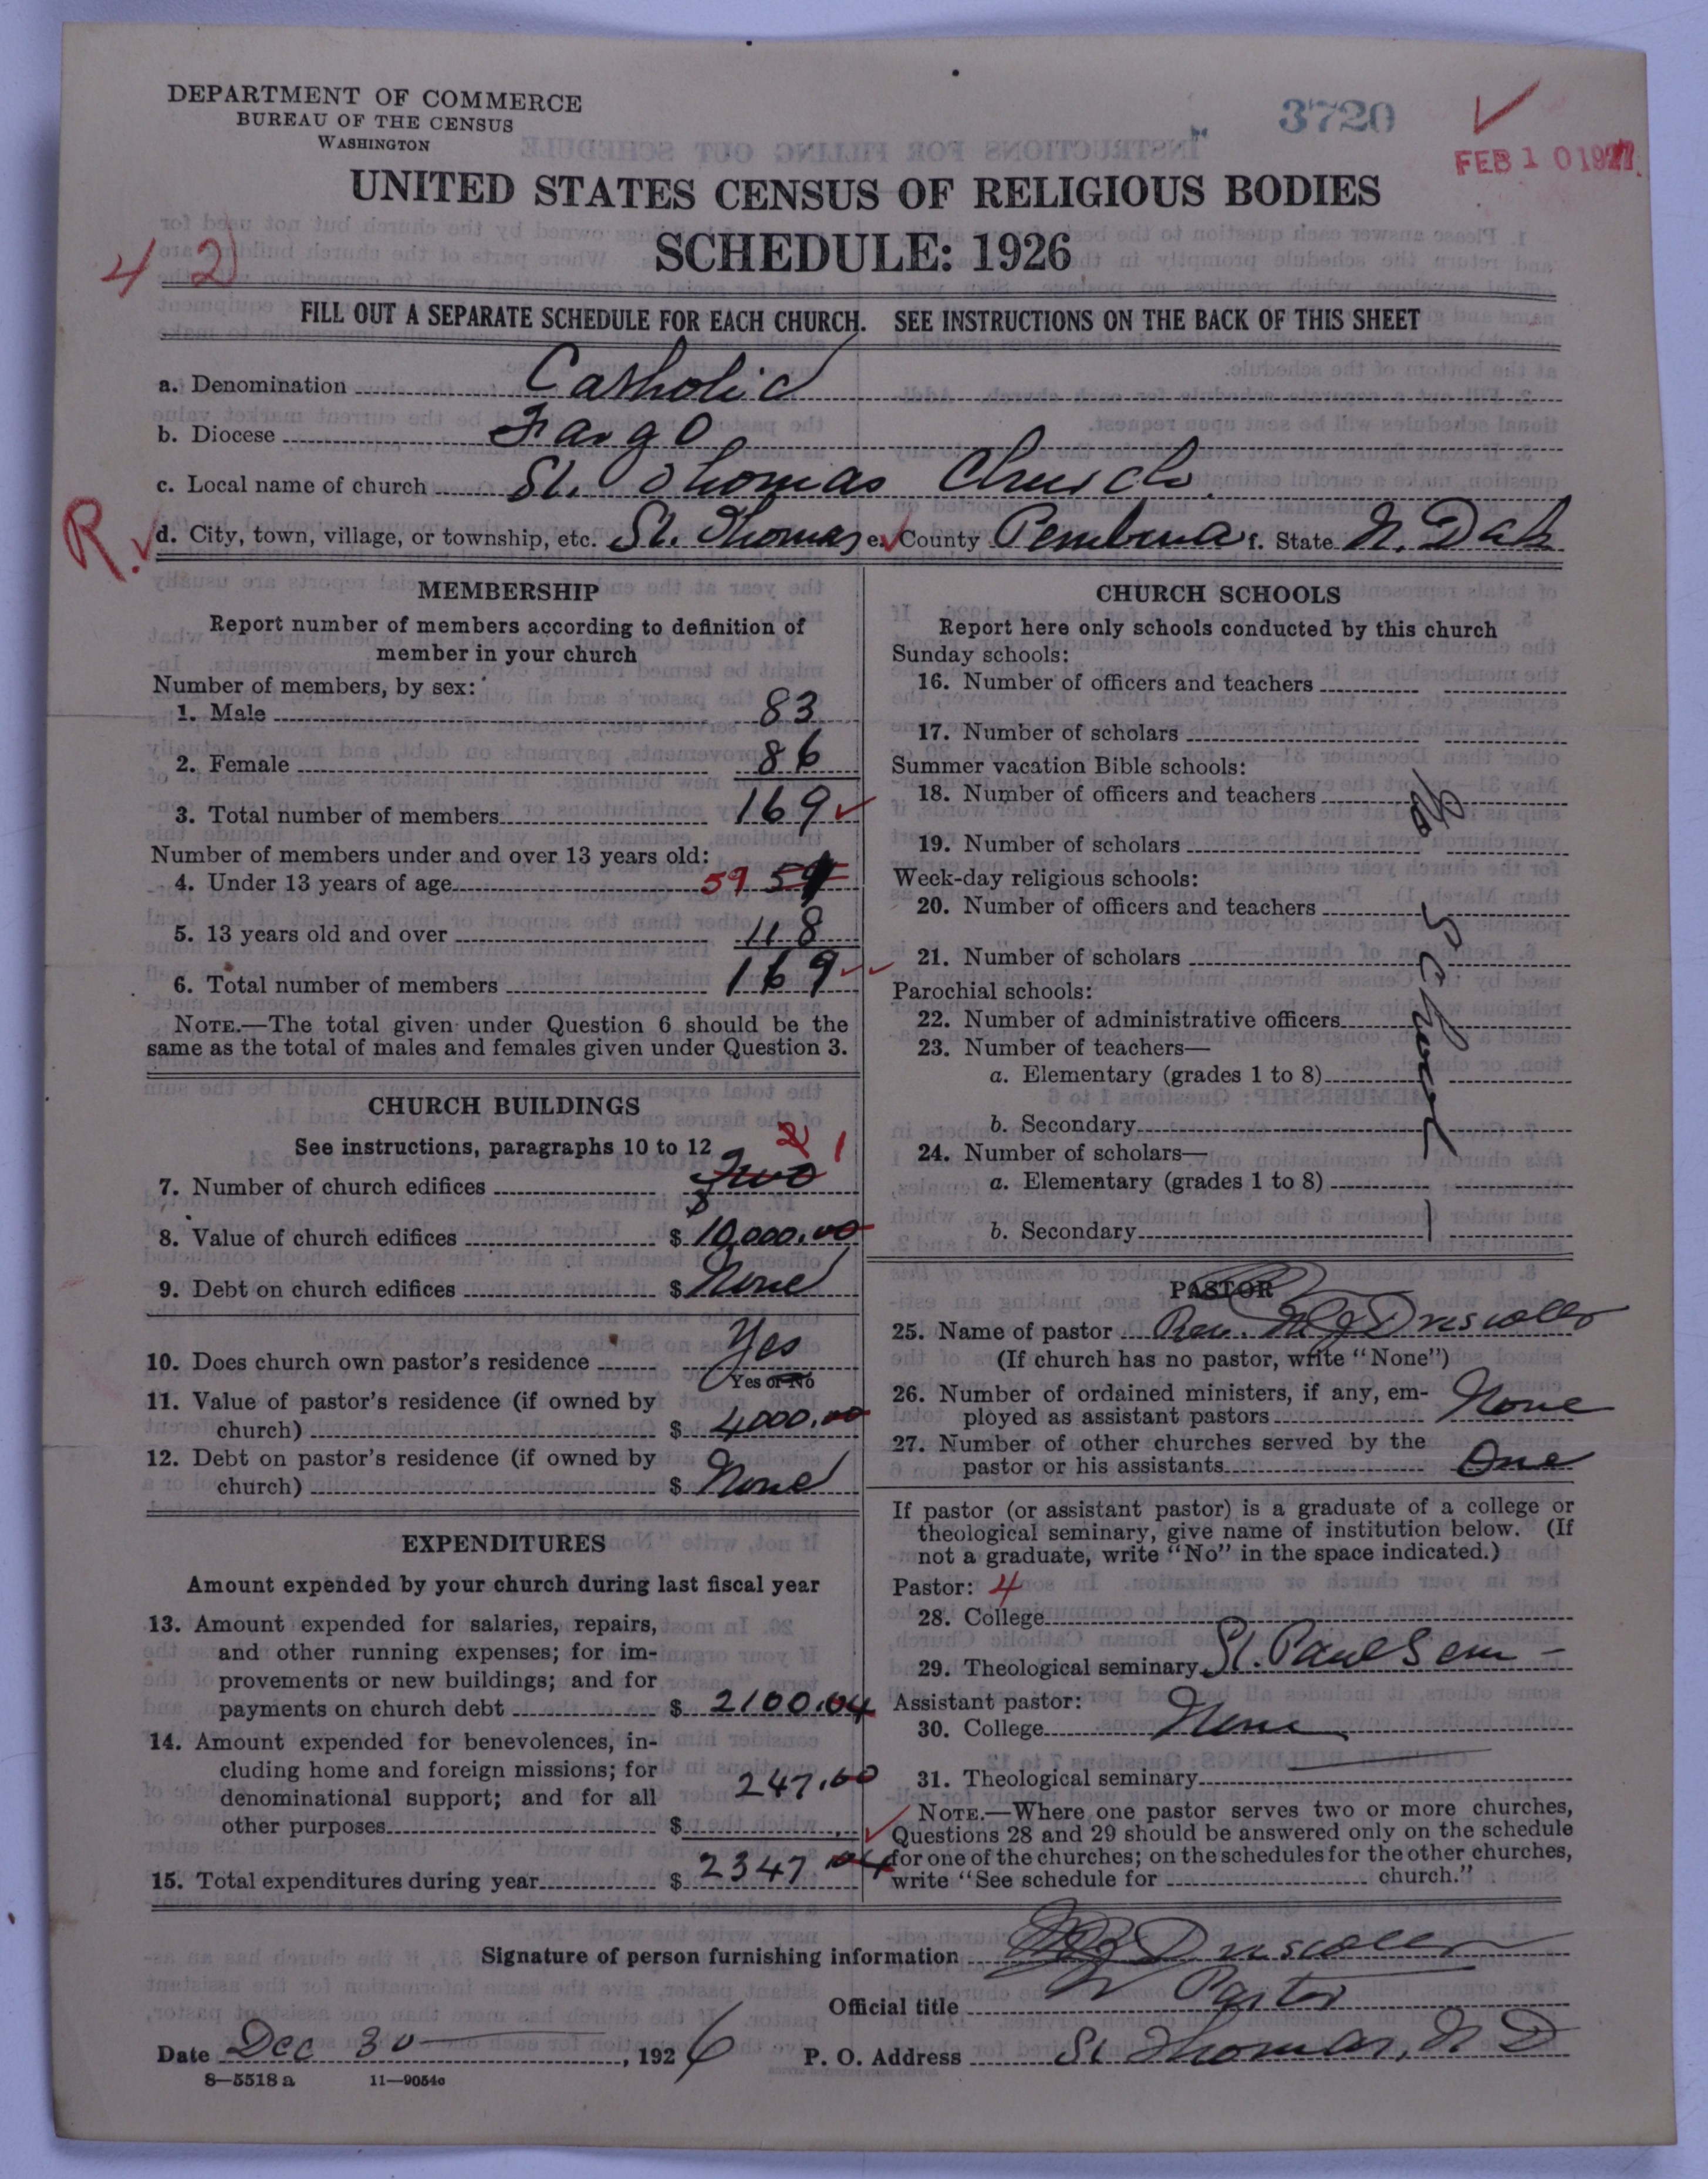 DEPARTMENT OF COMMERCE
BUREAU OF THE CENSUS
WASHINGTON
3720
FEB 10 1927
UNITED STATES CENSUS OF RELIGIOUS BODIES
SCHEDULE: 1926
4 2
FILL OUT A SEPARATE SCHEDULE FOR EACH CHURCH. SEE INSTRUCTIONS ON THE BACK OF THIS SHEET
a. Denomination Catholic
b. Diocese Fargo
c. Local name of church St. Thomas Church.
R. d. City, town, village, or township, etc. St. Thomas e. County Pembina f. State N. Dak
MEMBERSHIP
Report number of members according to definition of
member in your church
Number of members, by sex:
1. Male 83
2. Female 86
3. Total number of members 169
Number of members under and over 13 years old:
4. Under 13 years of age 59 51
5. 13 years old and over 118
6. Total number of members 169
NOTE.—The total given under Question 6 should be the
same as the total of males and females given under Question 3.
CHURCH BUILDINGS
See instructions, paragraphs 10 to 12
2 1
7. Number of church edifices Two
8. Value of church edifices $ 10,000.00
9. Debt on church edifices $ None
10. Does church own pastor's residence Yes
Yes or No
11. Value of pastor's residence (if owned by
church) $ 4000.00
12. Debt on pastor's residence (if owned by
church) $ None
EXPENDITURES
Amount expended by your church during last fiscal year
13. Amount expended for salaries, repairs,
and other running expenses; for im-
provements or new buildings; and for
payments on church debt $ 2100.04
14. Amount expended for benevolences, in-
cluding home and foreign missions; for
denominational support; and for all 247.60
other purposes $
15. Total expenditures during year $ 2347.04
CHURCH SCHOOLS
Report here only schools conducted by this church
Sunday schools:
16. Number of officers and teachers
17. Number of scholars
Summer vacation Bible schools:
18. Number of officers and teachers
19. Number of scholars
Week-day religious schools:
20. Number of officers and teachers
21. Number of scholars
Parochial schools:
22. Number of administrative officers
23. Number of teachers—
a. Elementary (grades 1 to 8)
b. Secondary
24. Number of scholars—
a. Elementary (grades 1 to 8)
b. Secondary
PASTOR
25. Name of pastor Rev. M J Driscoll
(If church has no pastor, write "None")
26. Number of ordained ministers, if any, em-
ployed as assistant pastors None
27. Number of other churches served by the
pastor or his assistants One
If pastor (or assistant pastor) is a graduate of a college or
theological seminary, give name of institution below. (If
not a graduate, write "No" in the space indicated.)
Pastor: 4
28. College
29. Theological seminary St. Paul Sem-
Assistant pastor:
30. College None
31. Theological seminary
NOTE.—Where one pastor serves two or more churches,
Questions 28 and 29 should be answered only on the schedule
for one of the churches; on the schedules for the other churches,
write "See schedule for church."
Signature of person furnishing information M J Driscoll
Official title Pastor
Date Dec 30, 1926 P. O. Address St Thomas, N D
8—5518 a 11—9054c